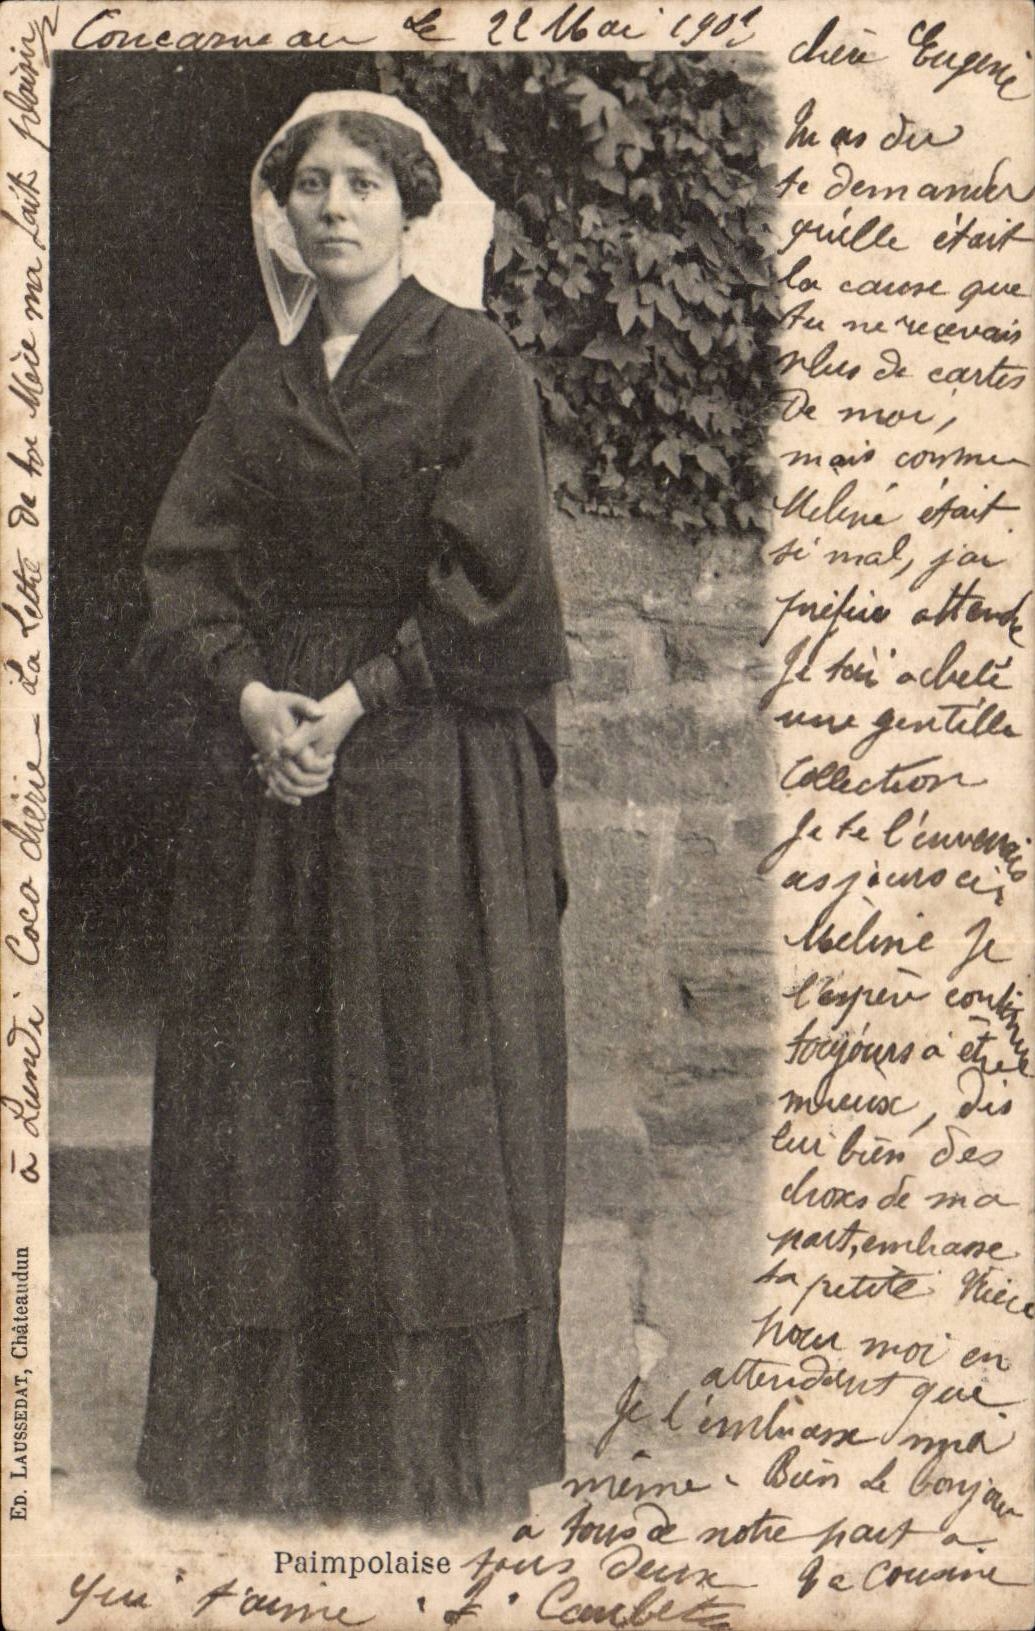 Concarneau Le 22 Mai 190
chère Eugenie
tu as du
te demander
qu'elle était
la cause que
tu ne recevais
plus de cartes
de moi,
mais comme
Méline était
si mal, j'ai
préféré attendre
Je t'ai acheté
une gentille
Collection
Je te l'enverrais
ces jours ci,
Méline Je
l'espère continue
toujours à être
mieux, dis
lui bien des
choses de ma
part, embrasse
ta petite Nièce
pour moi en
attendant que
Je l'embrasse moi
même. Bien le bonjour
a tous de notre part a
tous deux Ta Cousine
qui t'aime
Paimpolaise
à Lundi Coco chérie La Lettre de ta Mère ma fait plaisir
ED. LAUSSEDAT, Châteaudun